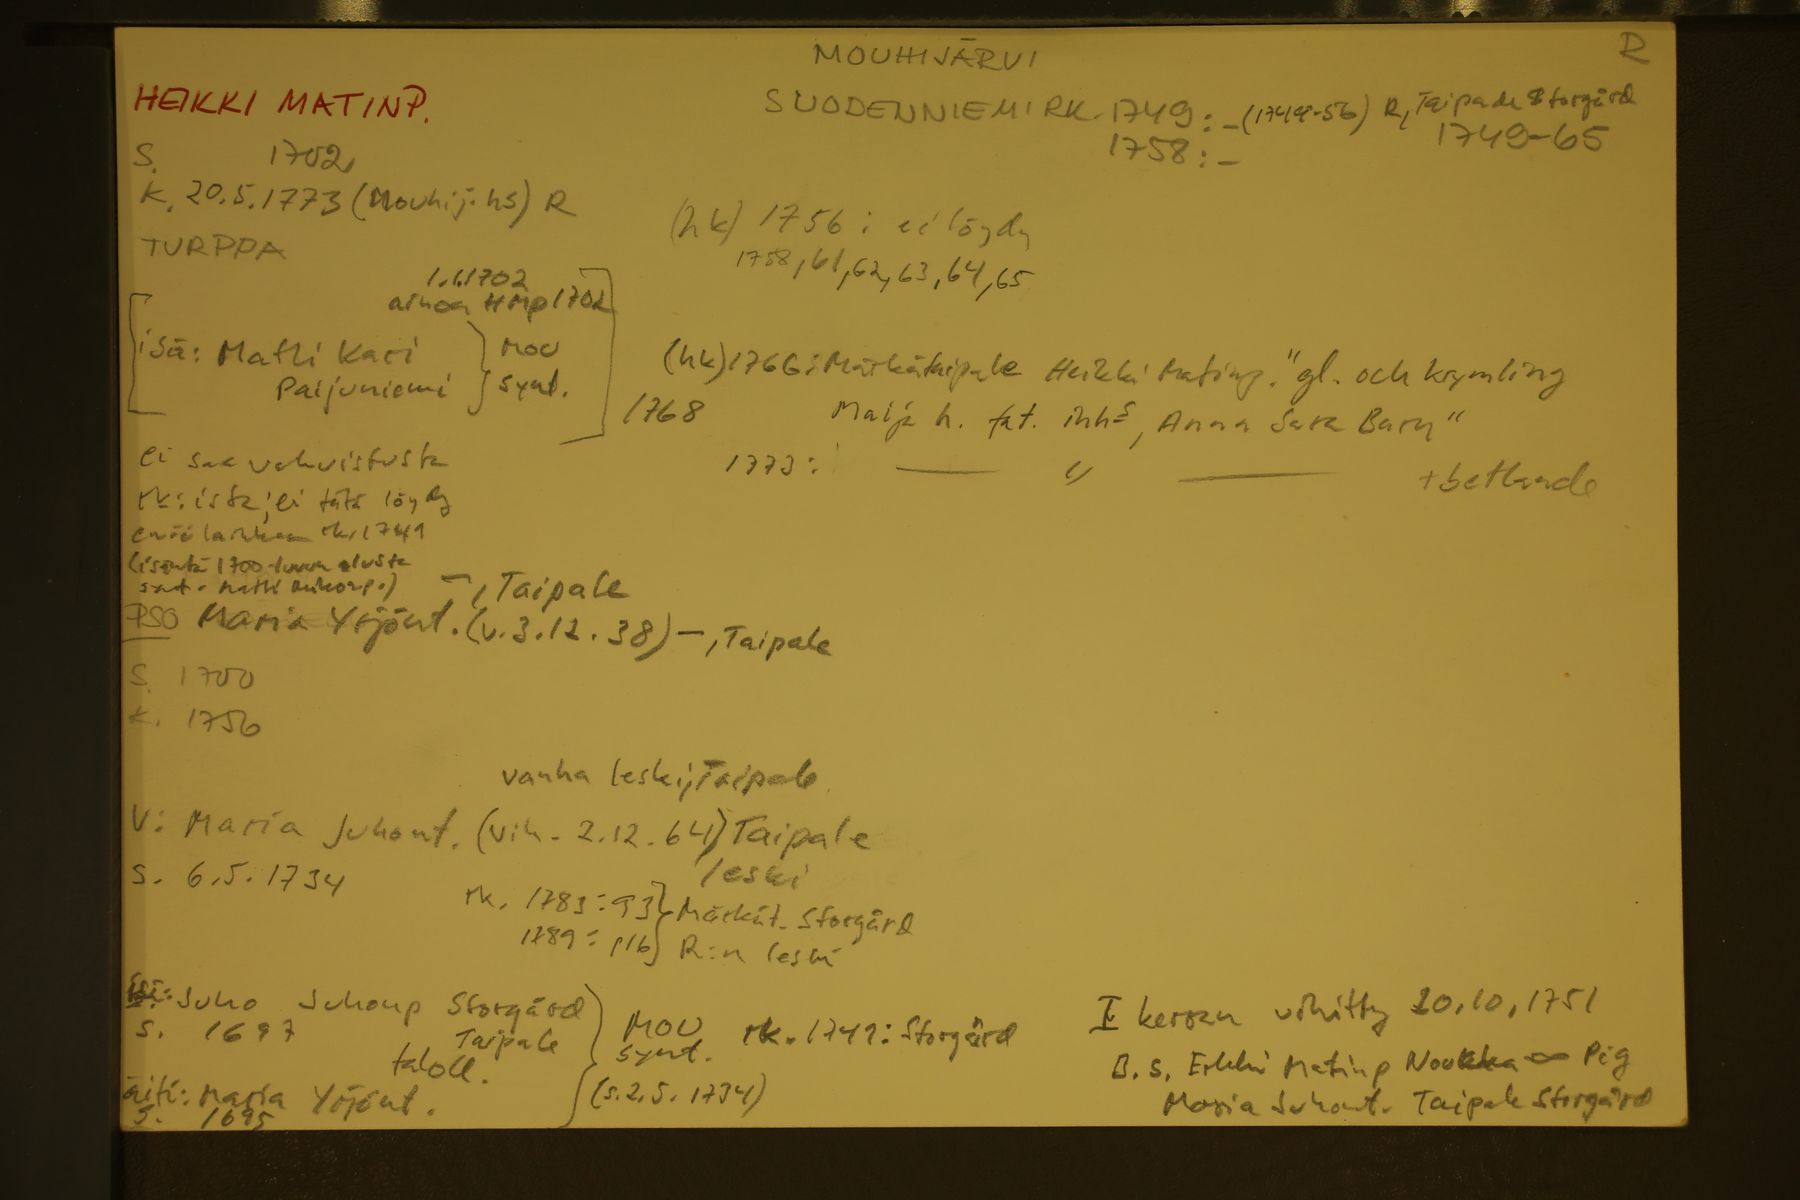 MOUHIJÄRVI
R
HEIKKI MATINP.
SUODENNIEMI RK. 1749: – (1749-56) R, Taipale Storgård
1758: – 1749-65
S. 1702
K. 20.5.1773 (Mouhij. hs) R
TURPPA
(hk) 1756: ei löydy
1758, 61, 62, 63, 64, 65
1.1.1702
ainoa HMp 1702
isä: Matti Kari
Paijuniemi
MOU
synt.
(hk) 1766: Märkätaipale Heikki Matinp. "gl. och krymling
1768 Maija h. fat. inhs, Anna Sara Barn"
1773: — " — + betlande
ei saa vahvistusta
rk:ista; ei tätä löydy
rk. 1749
(isäntä 1700-luvun alusta
synt. Matti)
–, Taipale
PSO Maria Yrjönt. (v. 3.12.38) –, Taipale
S. 1700
K. 1756
vanha leski, Taipale
V: Maria Juhont. (vih. 2.12.64) Taipale
leski
S. 6.5.1734
rk. 1783: 93
1789: 116
Märkät. Storgård
R:n leski
isä: Juho Juhonp Storgård
S. 1697 Taipale
taloll.
äiti: Maria Yrjönt.
S. 1695
MOU
synt.
(s. 2.5.1734)
rk. 1749: Storgård
I kerran vihitty 20.10.1751
B.S. Erkki Matinp Noukka ∞ Pig
Maria Juhont. Taipale Storgård